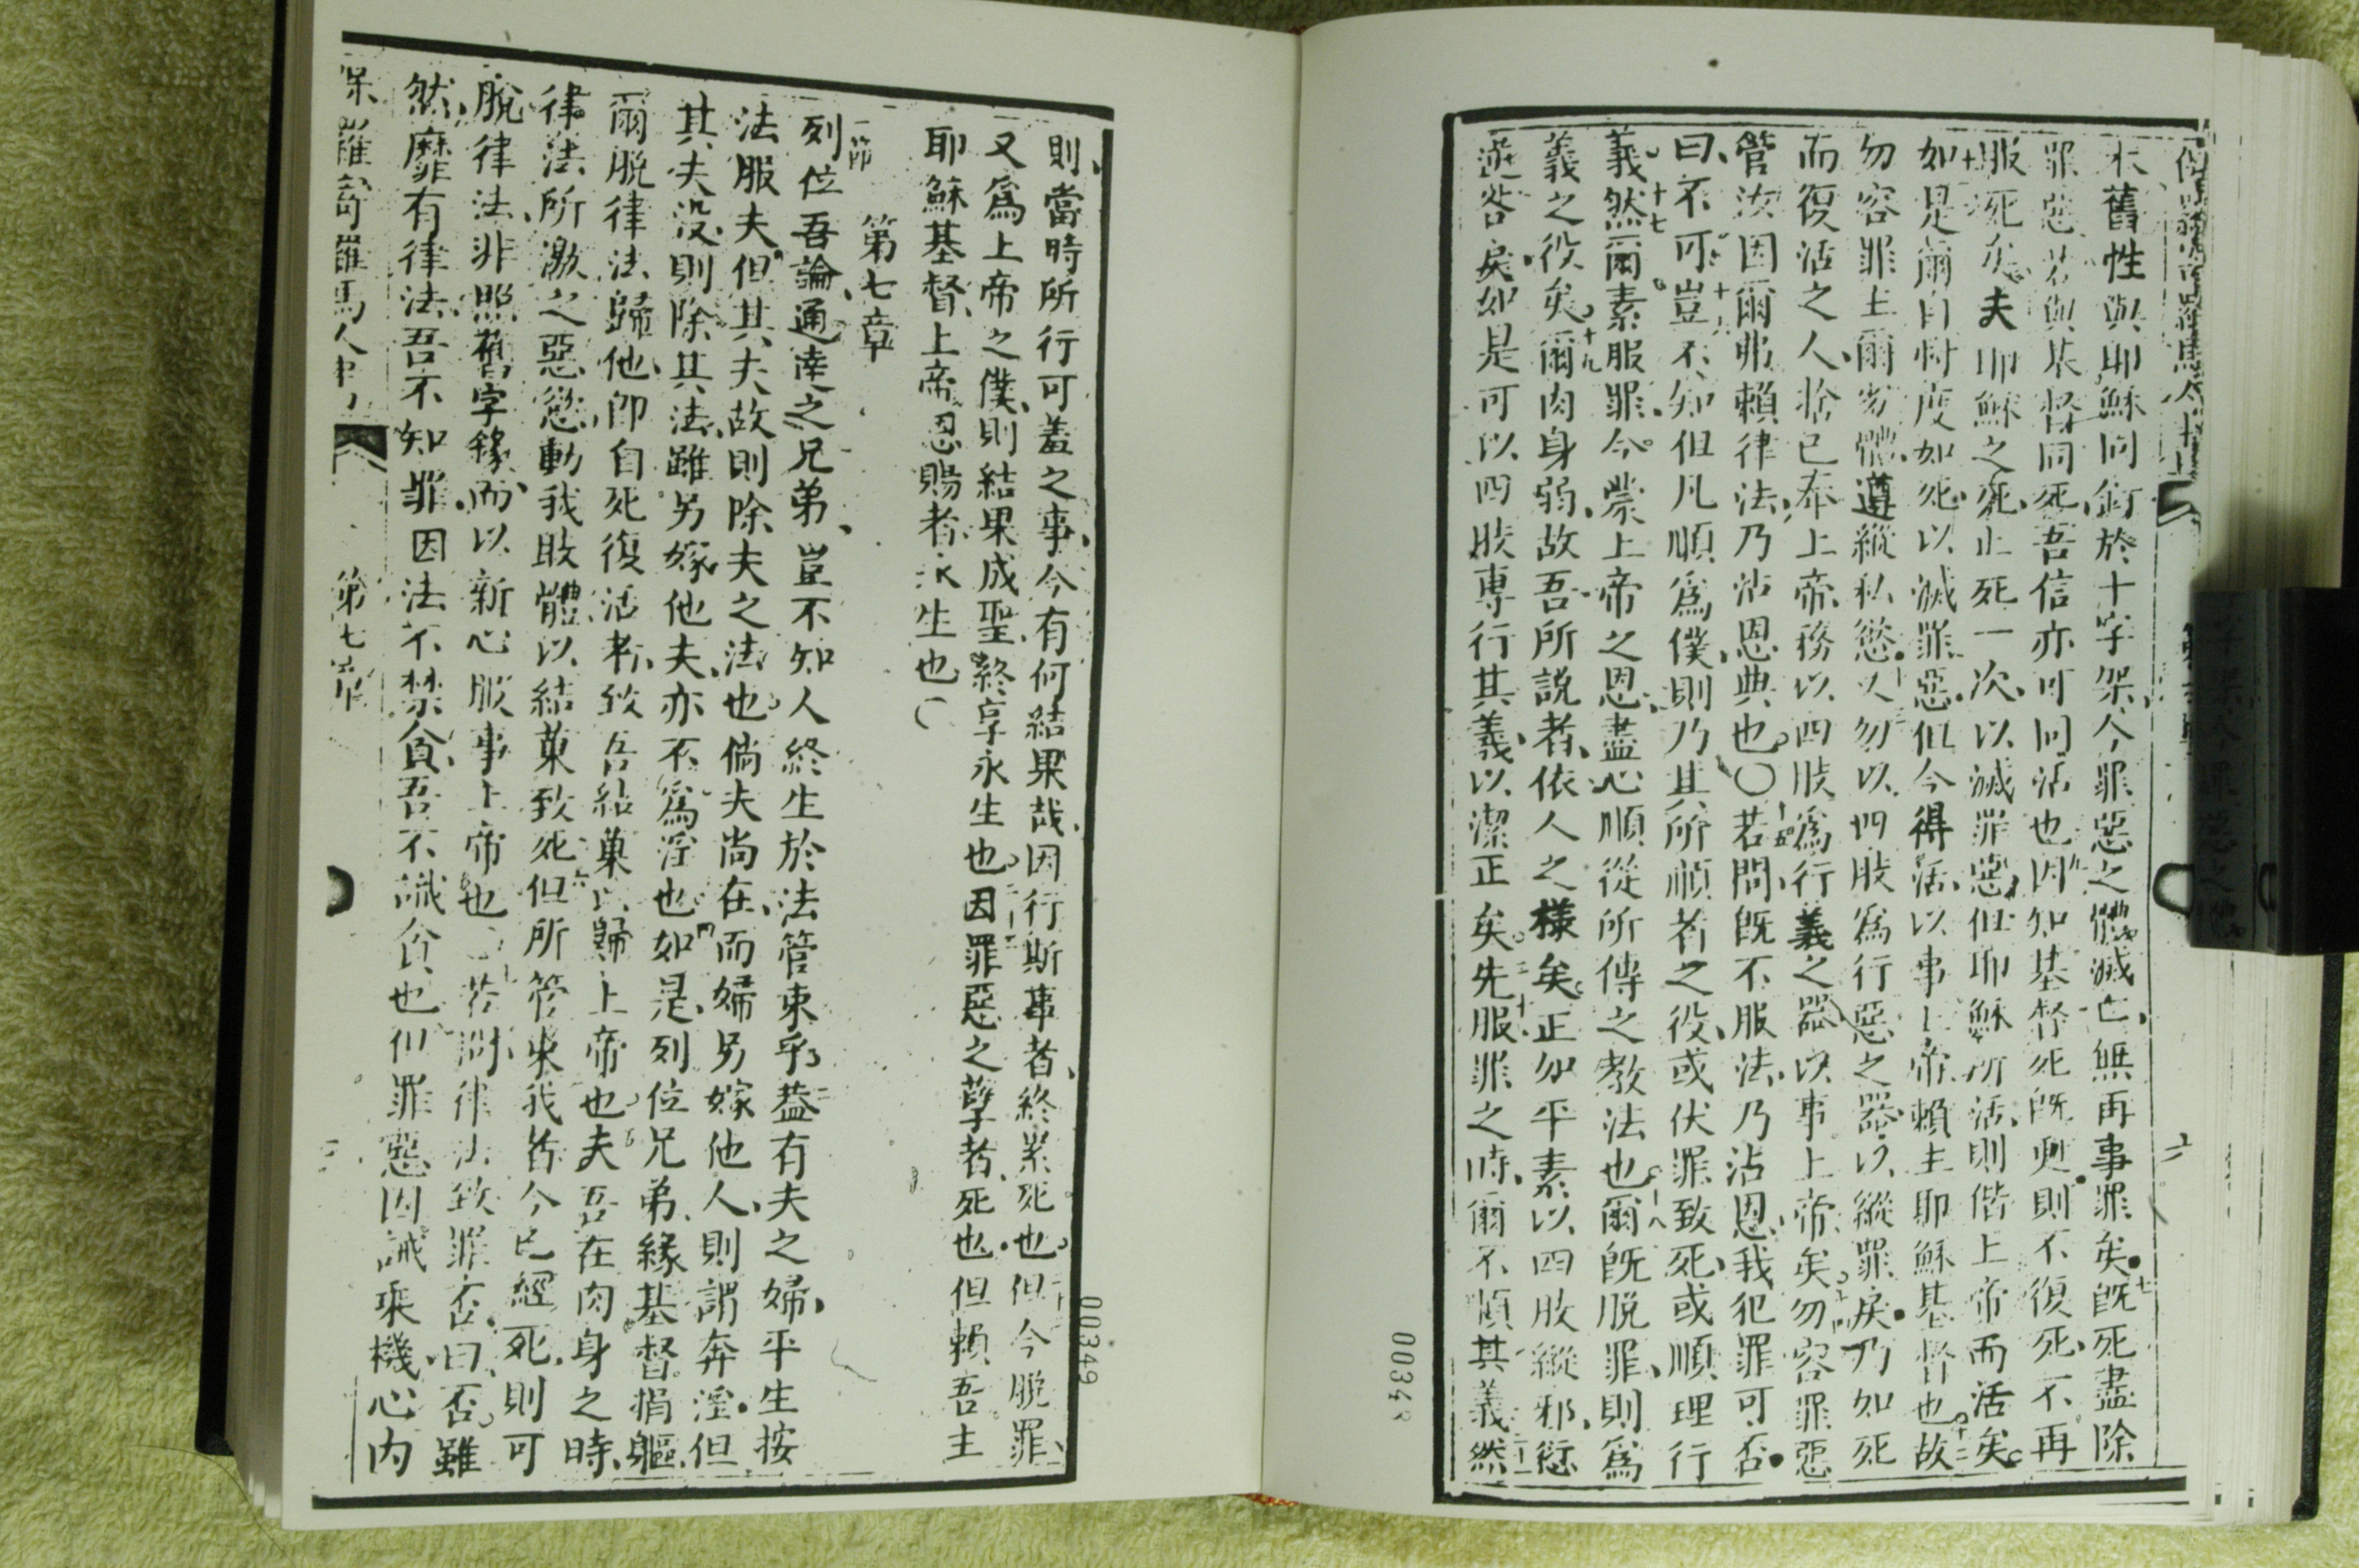 保羅寄羅馬人書
木舊性與耶穌同釘於十字架、令罪惡之體滅亡、無再事罪矣。七旣死盡除
罪惡若與基督同死、吾信亦可同活也因知基督死旣甦。則不復死、不再
服死矣。夫耶穌之死、止死一次、以滅罪惡、但耶穌所活、則偕上帝而活矣。
十一如是爾自忖度如死、以滅罪惡、但今得活、以事上帝、賴主耶穌基督也十二故
勿容罪主爾歹體、遵縱私慾。十三又勿以四肢爲行惡之器、以縱罪戾。乃如死
而復活之人、捨己奉上帝、務以四肢爲行義之器以事上帝矣十四勿容罪惡
管汝因爾弗賴律法、乃沾恩典也。〇十五若問旣不服法、乃沾恩、我犯罪可否。
曰、不可、十六豈不知但凡順爲僕、則乃其所順者之役、或伏罪致死、或順理行
義。十七然爾素服罪、今蒙上帝之恩、盡心順從所傳之教法也十八爾旣脫罪、則爲
義之役矣。十九爾肉身弱、故吾所說者、依人之樣矣。正如平素以四肢縱邪、愆
逆咎戾、如是可以四肢專行其義、以潔正矣。二十先服罪之時、爾不順其義二十一然
00348
則、當時所行可羞之事、今有何結果哉、因行斯事者、終累死也。但今脫罪、
又爲上帝之僕、則結果成聖、終享永生也。因罪惡之孽者、死也。但賴吾主
耶穌基督、上帝恩賜者、永生也〇
第七章
一節列位吾論、通律之兄弟、豈不知人終生於法管束乎、二蓋有夫之婦、平生按
法服夫、但其夫故、則除夫之法也。倘夫尚在、而婦另嫁他人、則謂奔淫。但
其夫没、則除其法、雖另嫁他夫、亦不爲淫也四如是、列位兄弟、緣基督捐軀、
爾脫律法、歸他、卽自死復活者、致吾結菓以歸上帝也。五夫吾在肉身之時、
律法所激之惡慾、動我肢體、以結菓致死六但所管束我者、今已經死、則可
脫律法、非照舊字錄、而以新心服事上帝也七若問、律法致罪否。曰、否。雖
然、靡有律法、吾不知罪、因法不禁貪、吾不識貪也但罪惡因誡乘機、心内
保羅寄羅馬人書
第七章
00349